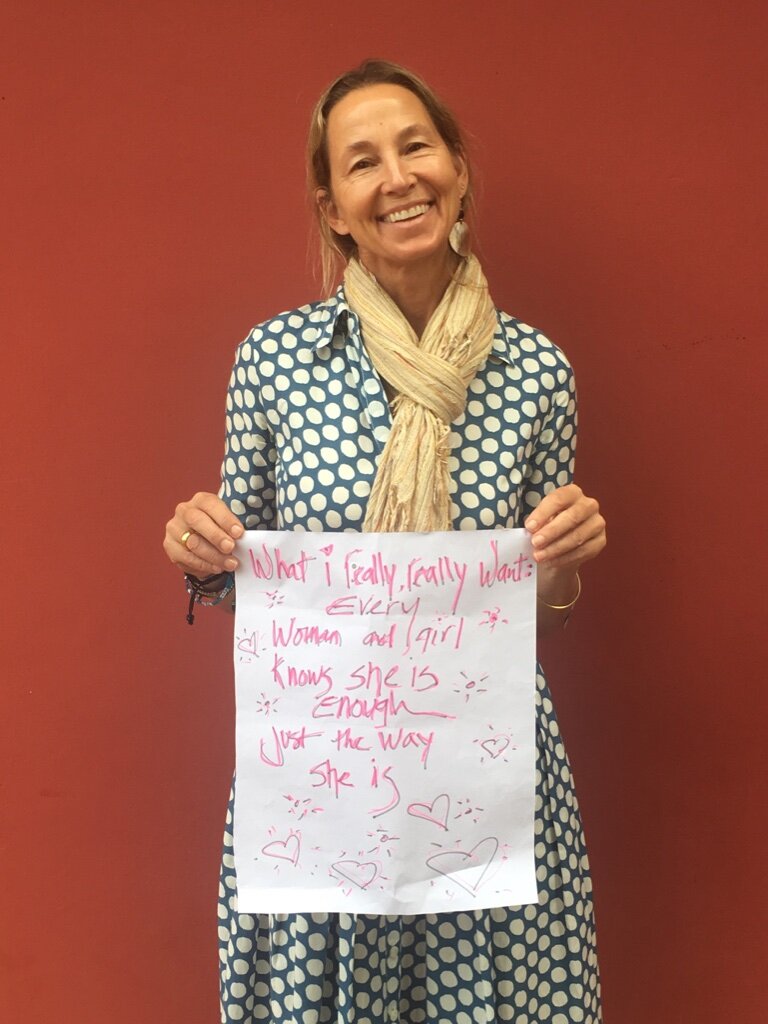 What i really, really Want:
Every
Woman and girl
Knows she is
Enough
Just the way
She is